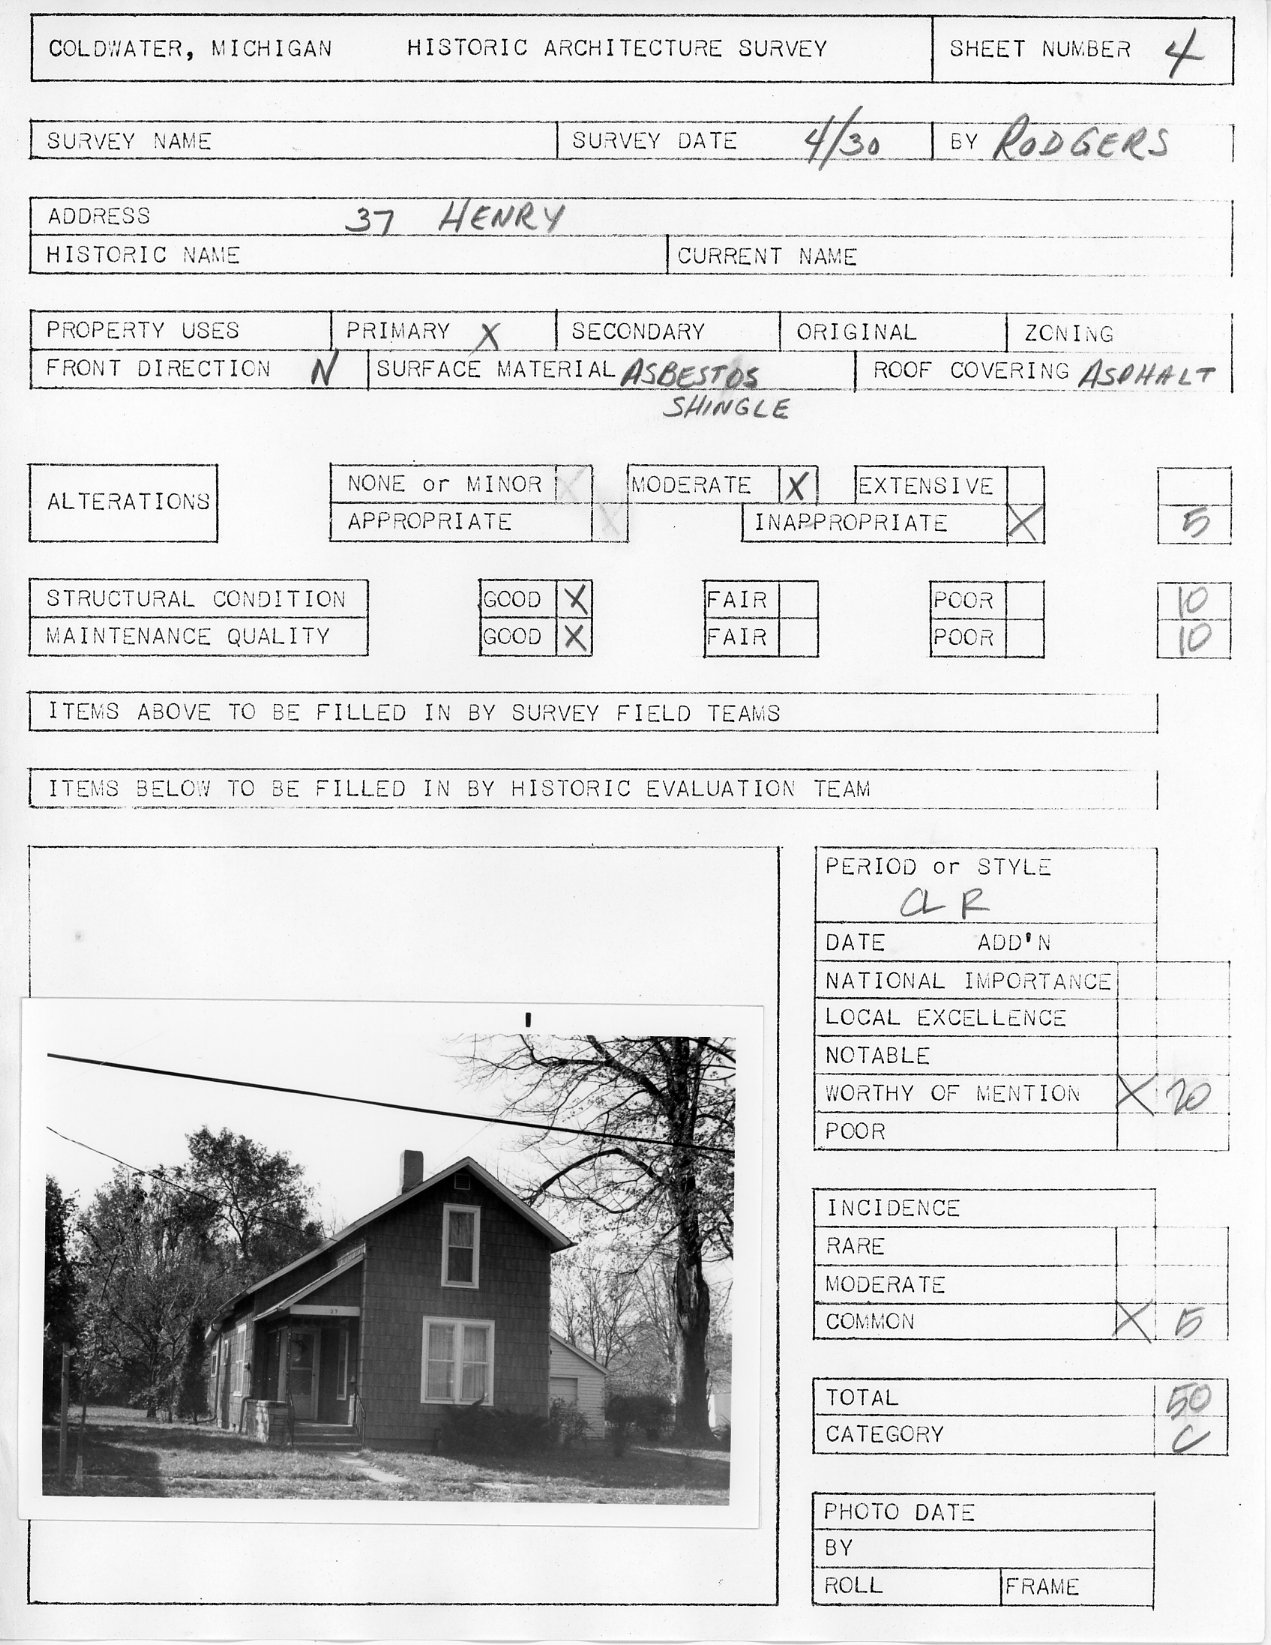 COLDWATER, MICHIGAN HISTORIC ARCHITECTURE SURVEY SHEET NUMBER 4
SURVEY NAME SURVEY DATE 4/30 BY RODGERS
ADDRESS 37 HENRY
HISTORIC NAME CURRENT NAME
PROPERTY USES PRIMARY X SECONDARY ORIGINAL ZONING
FRONT DIRECTION N SURFACE MATERIAL ASBESTOS ROOF COVERING ASPHALT
SHINGLE
ALTERATIONS
NONE or MINOR X MODERATE X EXTENSIVE
APPROPRIATE X INAPPROPRIATE X 5
STRUCTURAL CONDITION GOOD X FAIR POOR 10
MAINTENANCE QUALITY GOOD X FAIR POOR 10
ITEMS ABOVE TO BE FILLED IN BY SURVEY FIELD TEAMS
ITEMS BELOW TO BE FILLED IN BY HISTORIC EVALUATION TEAM
PERIOD or STYLE
CL R
DATE ADD'N
NATIONAL IMPORTANCE
LOCAL EXCELLENCE
NOTABLE
WORTHY OF MENTION X 20
POOR
INCIDENCE
RARE
MODERATE
COMMON X 5
TOTAL 50
CATEGORY C
PHOTO DATE
BY
ROLL FRAME